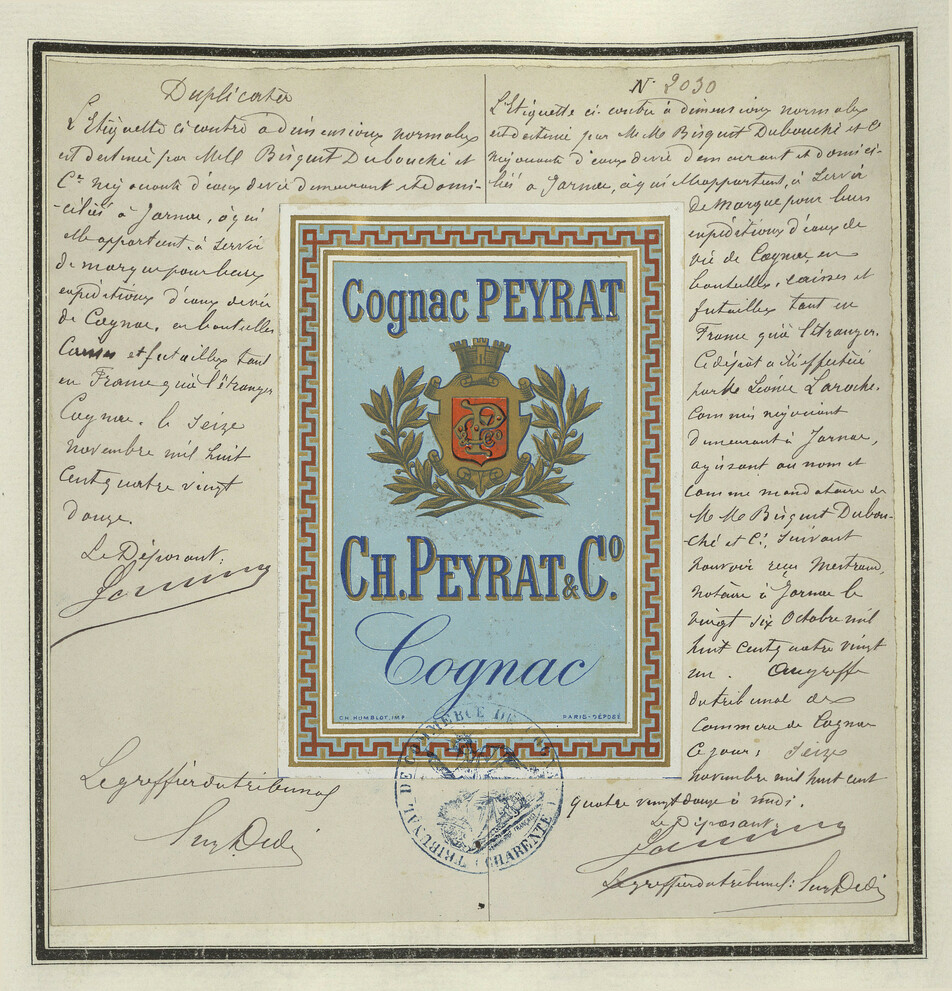 Duplicata
L'Etiquette ci contre à dimensions normales
est destinée par MM Bisquit Dubouché et
Cie négociants d'eaux de vie demeurant et domi-
-ciliés à Jarnac, à qui
elle appartient, à servir
de marque pour leurs
expéditions d'eaux de vie
de Cognac, en bouteilles
Caisses et futailles tant
en France qu'à l'étranger
Cognac, le seize
novembre mil huit
cent quatre vingt
douze.
Le Déposant:
Le greffier du tribunal
No 2030
L'Etiquette ci-contre à dimensions normales
est destinée par MM. Bisquit Dubouché et Cie
négociants d'eaux de vie demeurant et domici-
liés à Jarnac, à qui elle appartient, à servir
de marque pour leurs
expéditions d'eaux de
vie de Cognac en
bouteilles, caisses et
futailles tant en
France qu'à l'étranger.
Ce dépôt a été effectué
par M Léonce Laroche,
Commis négociant
demeurant à Jarnac,
agissant au nom et
comme mandataire de
MM Bisquit Dubou-
ché et Cie, suivant
pouvoir reçu Mestraud,
notaire à Jarnac le
vingt six Octobre mil
huit cent quatre vingt
un. Au greffe
du tribunal de
Commerce de Cognac
Ce jour, seize
novembre mil huit cent
quatre vingt douze à midi.
Le Déposant:
Le greffier du tribunal:
Cognac PEYRAT
CH. PEYRAT & CO.
Cognac
CH. HUMBLOT, IMP
PARIS-DÉPOSÉ
TRIBUNAL DE COMMERCE DE COGNAC
CHARENTE